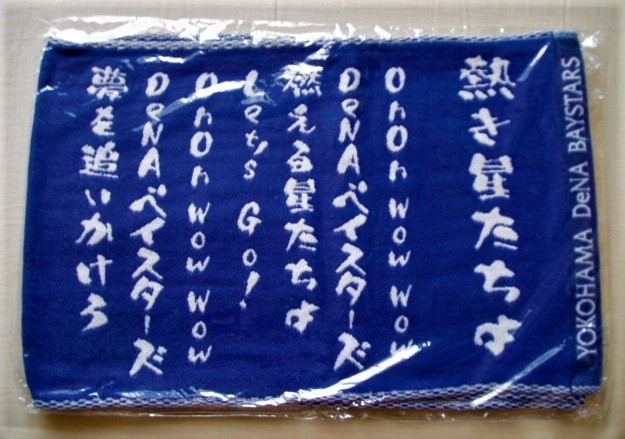 熱き星たちよ
OhOh WoW WoW
DeNAベイスターズ
燃える星たちよ
Let's Go!
OhOh WoW WoW
DeNAベイスターズ
夢を追いかけろ
YOKOHAMA DeNA BAYSTARS